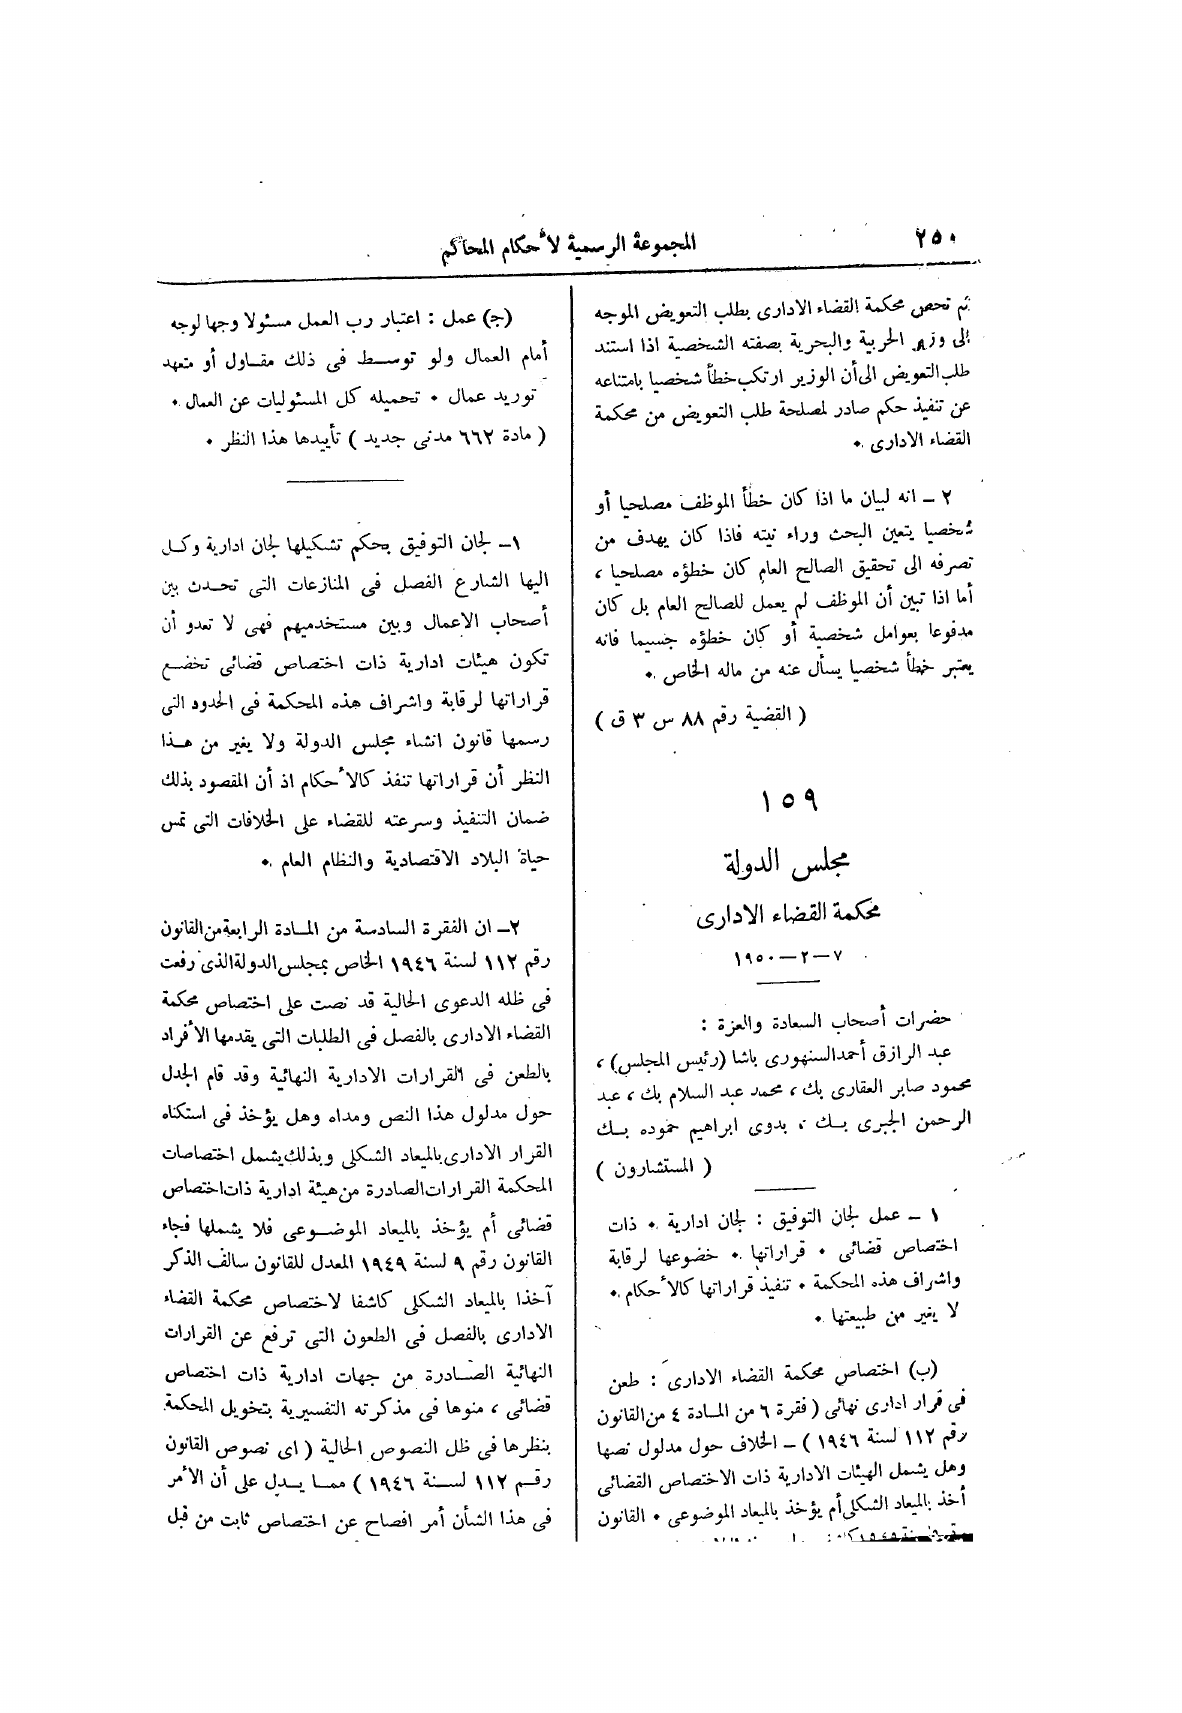 ٢٥٠
المجموعة الرسمية لأحكام المحاكم
ثم تختص محكمة القضاء الادارى بطلب التعويض الموجه
الى وزير الحربية والبحرية بصفته الشخصية اذا استند
طلب التعويض الى أن الوزير ارتكب خطأ شخصيا بامتناعه
عن تنفيذ حكم صادر لمصلحة طلب التعويض من محكمة
القضاء الادارى ٠
٢ – انه لبيان ما اذا كان خطأ الموظف مصلحيا أو
شخصيا يتعين البحث وراء نيته فاذا كان يهدف من
تصرفه الى تحقيق الصالح العام كان خطؤه مصلحيا ،
أما اذا تبين أن الموظف لم يعمل للصالح العام بل كان
مدفوعا بعوامل شخصية أو كان خطؤه جسيما فانه
يعتبر خطأ شخصيا يسأل عنه من ماله الخاص ٠
( القضية رقم ٨٨ س ٣ ق )
١٥٩
مجلس الدولة
محكمة القضاء الادارى
٧–٢–١٩٥٠
حضرات أصحاب السعادة والعزة :
عبد الرازق أحمد السنهورى باشا (رئيس المجلس) ،
محمود صابر العقارى بك ، محمد عبد السلام بك ، عبد
الرحمن الجبرى بك ، بدوى ابراهيم حموده بك
( المستشارون )
١ – عمل لجان التوفيق : لجان ادارية ٠ ذات
اختصاص قضائى ٠ قراراتها ٠ خضوعها لرقابة
واشراف هذه المحكمة ٠ تنفيذ قراراتها كالأحكام ٠
لا يغير من طبيعتها ٠
(ب) اختصاص محكمة القضاء الادارى : طعن
فى قرار ادارى نهائى ( فقرة ٦ من المادة ٤ من القانون
رقم ١١٢ لسنة ١٩٤٦ ) – الخلاف حول مدلول نصها
وهل يشمل الهيئات الادارية ذات الاختصاص القضائى
أخذ بالميعاد الشكلى أم يؤخذ بالميعاد الموضوعى ٠ القانون
(ج) عمل : اعتبار رب العمل مسئولا وجها لوجه
أمام العمال ولو توسط فى ذلك مقاول أو متعهد
توريد عمال ٠ تحميله كل المسئوليات عن العمال ٠
( مادة ٦٦٢ مدنى جديد ) تأييدها هذا النظر ٠
١– لجان التوفيق بحكم تشكيلها لجان ادارية وكل
اليها الشارع الفصل فى المنازعات التى تحدث بين
أصحاب الاعمال وبين مستخدميهم فهى لا تعدو أن
تكون هيئات ادارية ذات اختصاص قضائى تخضع
قراراتها لرقابة واشراف هذه المحكمة فى الحدود التى
رسمها قانون انشاء مجلس الدولة ولا يغير من هذا
النظر أن قراراتها تنفذ كالأحكام اذ أن المقصود بذلك
ضمان التنفيذ وسرعته للقضاء على الخلافات التى تمس
حياة البلاد الاقتصادية والنظام العام ٠
٢– ان الفقرة السادسة من المادة الرابعة من القانون
رقم ١١٢ لسنة ١٩٤٦ الخاص بمجلس الدولة الذى رفعت
فى ظله الدعوى الحالية قد نصت على اختصاص محكمة
القضاء الادارى بالفصل فى الطلبات التى يقدمها الأفراد
بالطعن فى القرارات الادارية النهائية وقد قام الجدل
حول مدلول هذا النص ومداه وهل يؤخذ فى استكناه
القرار الادارى بالميعاد الشكلى وبذلك يشمل اختصاصات
المحكمة القرارات الصادرة من هيئة ادارية ذات اختصاص
قضائى أم يؤخذ بالميعاد الموضوعى فلا يشملها فجاء
القانون رقم ٩ لسنة ١٩٤٩ المعدل للقانون سالف الذكر
آخذا بالميعاد الشكلى كاشفا لاختصاص محكمة القضاء
الادارى بالفصل فى الطعون التى ترفع عن القرارات
النهائية الصادرة من جهات ادارية ذات اختصاص
قضائى ، منوها فى مذكرته التفسيرية بتخويل المحكمة
بنظرها فى ظل النصوص الحالية ( اى نصوص القانون
رقم ١١٢ لسنة ١٩٤٦ ) مما يدل على أن الأمر
فى هذا الشأن أمر افصاح عن اختصاص ثابت من قبل